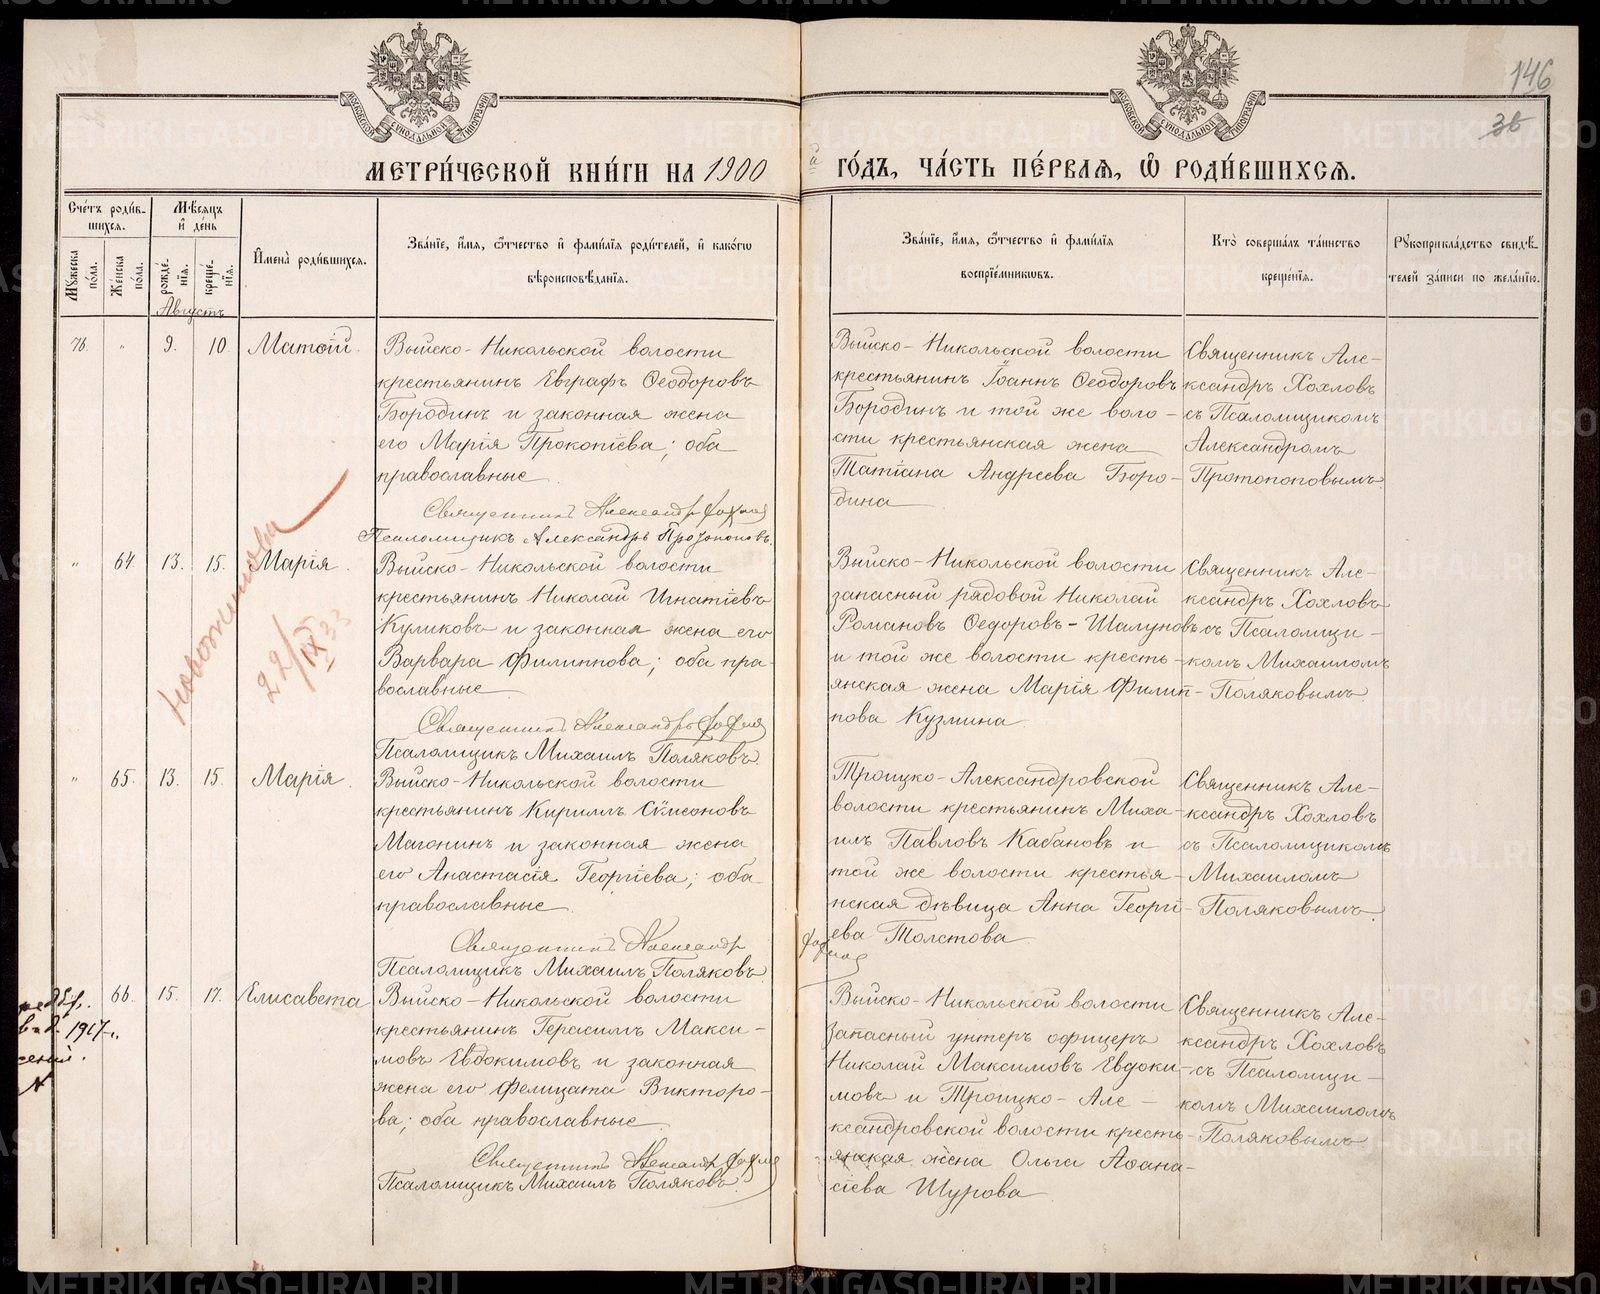 146
36
МЕТРИ́ЧЕСКОЙ КНИ́ГИ НА 1900 й ГО́ДЪ, ЧА́СТЬ ПЕ́РВАѦ, Ѽ РОДИ́ВШИХСѦ.
Сче́тъ роди́в-
шихсѧ.
Мꙋжеска по́ла.
Же́нска по́ла.
Мѣ́сѧцъ и де́нь
рожде́нїѧ.
креще́нїѧ.
Августъ
И҆мена̀ роди́вшихсѧ.
Зва́нїе, и҆́мѧ, ѻ҆́тчество и҆ фами́лїѧ роди́телей, и҆ како́гѡ
вѣроисповѣ́данїѧ.
Зва́нїе, и҆́мѧ, ѻ҆́тчество и҆ фами́лїѧ
воспрїе́мникѡвъ.
Кто̀ соверша́лъ та́инство
креще́нїѧ.
Рꙋкоприкла́дство свидѣ́-
телей за́писи по жела́нїю.
76. " 9. 10. Матѳій.
Выйско-Никольской волости
крестьянинъ Евграфъ Ѳеодоровъ
Бородинъ и законная жена
его Марія Прокопіева; оба
православные.
Священникъ Александръ Хохлов
Псаломщикъ Александръ Протопоповъ.
Выйско-Никольской волости
крестьянинъ Іоаннъ Ѳеодоровъ
Бородинъ и той же воло-
сти крестьянская жена
Татіана Андреева Боро-
дина
Священникъ Але-
ксандръ Хохловъ
съ Псаломщикомъ
Александромъ
Протопоповымъ.
" 64 13. 15. Марія.
Выйско-Никольской волости
крестьянинъ Николай Игнатіевъ
Куликовъ и законная жена его
Варвара Филиппова; оба пра-
вославные.
Священникъ Александръ Хохлов
Псаломщикъ Михаилъ Поляковъ.
Выйско-Никольской волости
запасный рядовой Николай
Романовъ Ѳедоровъ-Шалуновъ
и той же волости кресть-
янская жена Марія Филип-
пова Кузмина.
Священникъ Але-
ксандръ Хохловъ
съ Псаломщи-
комъ Михаиломъ
Поляковымъ
22/IX 33
" 65. 13. 15. Марія.
Выйско-Никольской волости
крестьянинъ Кириллъ Сѵмеоновъ
Магонинъ и законная жена
его Анастасія Георгіева; оба
православные.
Священникъ Александр Хохлов
Псаломщикъ Михаилъ Поляковъ.
Троицко-Александровской
волости крестьянинъ Миха-
илъ Павловъ Кабановъ и
той же волости крестья-
нская дѣвица Анна Георгі-
ева Толстова.
Священникъ Але-
ксандръ Хохловъ
съ Псаломщикомъ
Михаиломъ
Поляковымъ.
1917 г.
66. 15. 17. Елисавета
Выйско-Никольской волости
крестьянинъ Герасимъ Макси-
мовъ Евдокимовъ и законная
жена его Фелицата Викторо-
ва; оба православные.
Священникъ Александр Хохлов
Псаломщикъ Михаилъ Поляковъ.
Выйско-Никольской волости
запасный унтеръ офицеръ
Николай Максимовъ Евдоки-
мовъ и Троицко-Але-
ксандровской волости кресть-
янская жена Ольга Аѳана-
сіева Щурова
Священникъ Але-
ксандръ Хохловъ
съ Псаломщи-
комъ Михаиломъ
Поляковымъ
METRIKI.GASO-URAL.RU